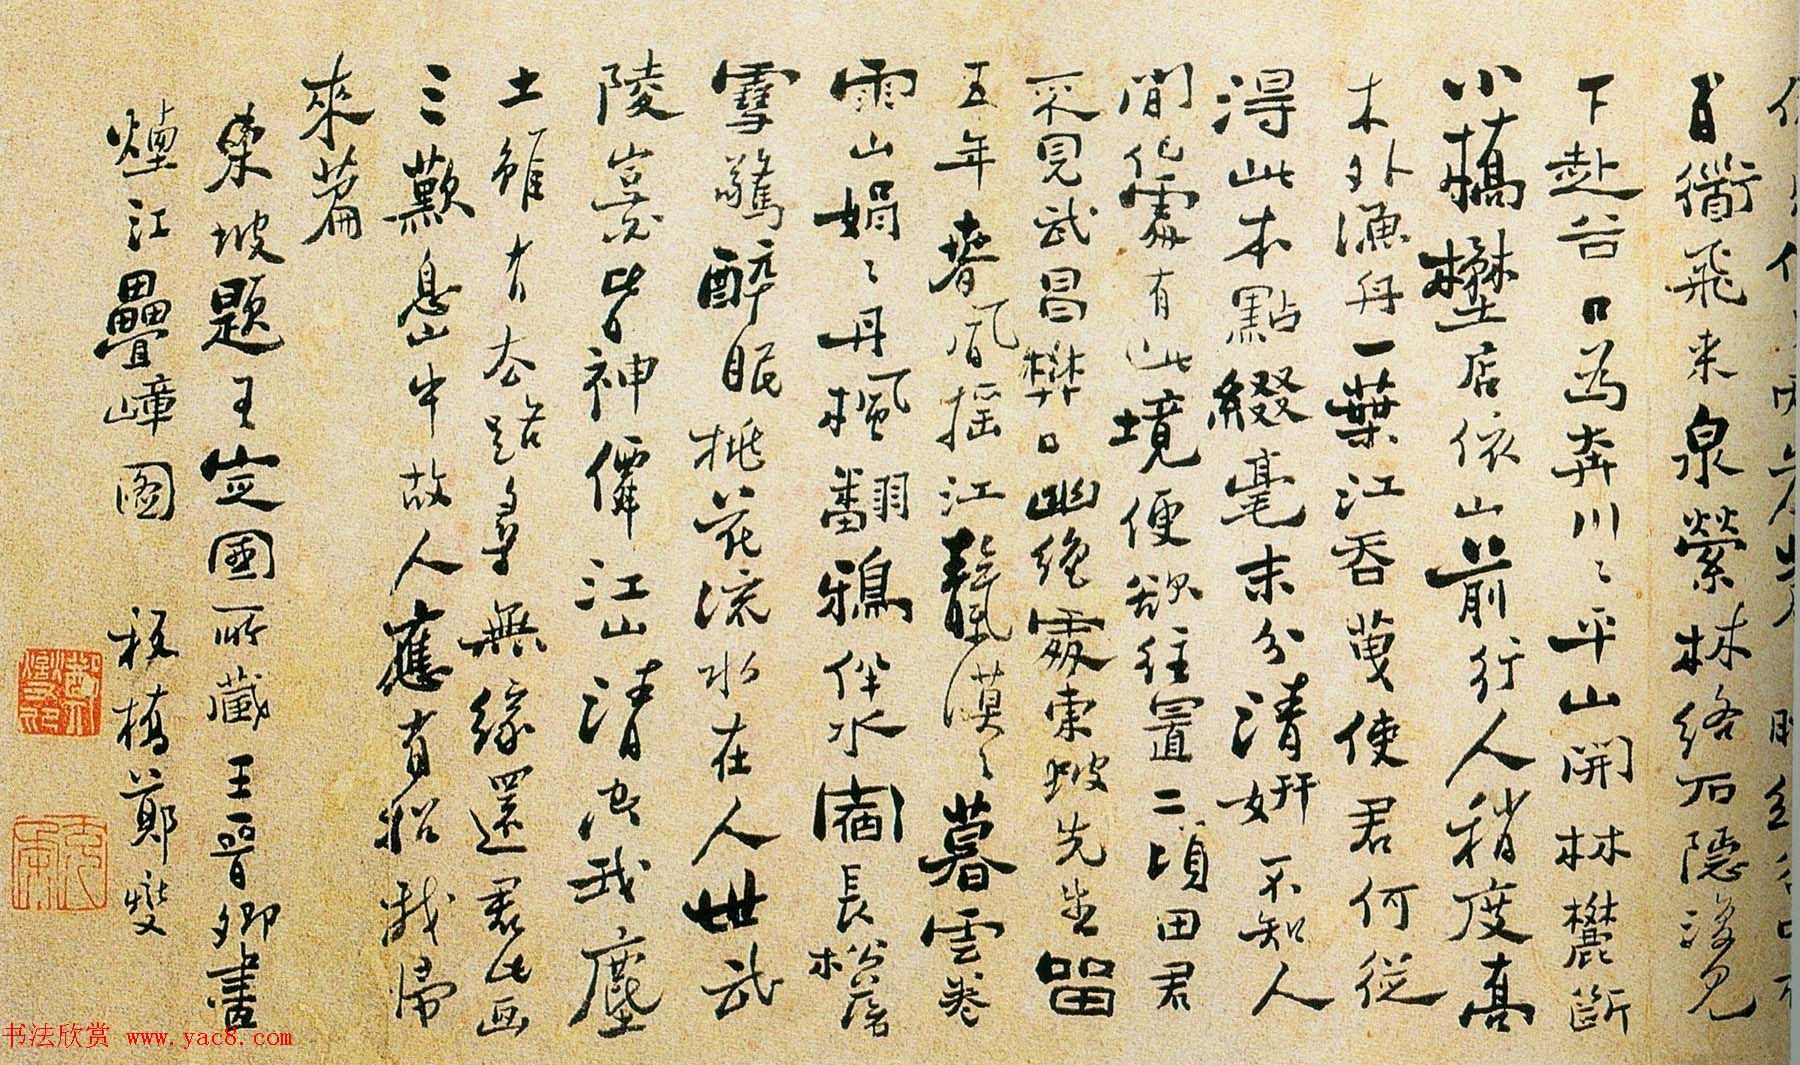 百衟飛来泉縈林絡石隱復見
下赴谷口為奔川ミ平山開林麓斷
小橋壄店依山前行人稍度喬
木外漁舟一葉江吞使君何從
得此本點綴毫末分清妍不知人
間何處有此境便欲往置二頃田君
不見武昌樊口幽絕處東坡先生留
五年春風搖江靝漠ミ暮雲卷
雨山娟ミ丹楓翻鴉伴水宿長松落
雪驚醉眠桃花流水在人世武
陵豈必皆神僊江山清空我塵
土雖有去路尋無緣還君此画
三歎息山中故人應有招我歸
來篇
東坡題王定國所藏王晉卿畫
煙江疊嶂圖 板橋鄭燮
书法欣赏 www.yac8.com